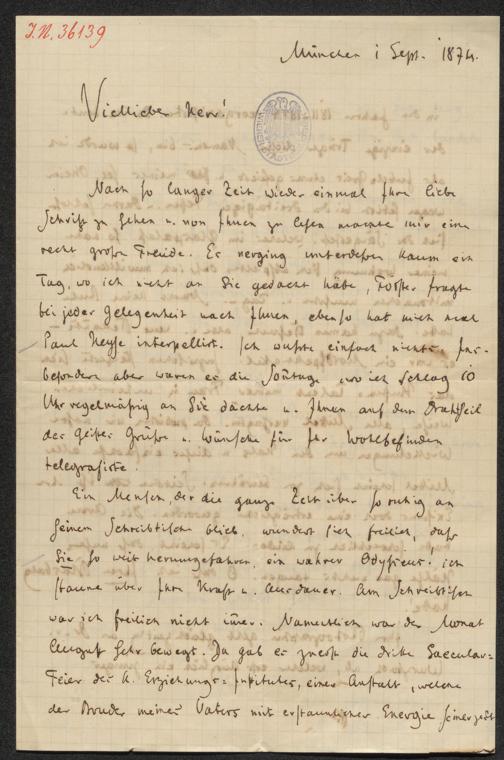 J.N. 36139
München 1 Sept. 1874.
Vielliebe Herr!
Nach so langer Zeit wieder einmal Ihre liebe
Schrift zu sehen u. von Ihnen zu lesen machte mir eine
recht große Freude. Es verging unterdessen kaum ein
Tag, wo ich nicht an Sie gedacht habe, fragte
bei jeder Gelegenheit nach Ihnen, ebenso hat mich
Paul Heyse interpellirt. Ich wußte einfach nichts. Ins-
besondere aber waren es die Sonntage, wo ich Schlag 10
Uhr regelmäßig an Sie dachte u. Ihnen auf dem Drahtseil
des Geistes Grüße u. Wünsche für Ihr Wohlbefinden
telegrafirte.
Ein Mensch, der die ganze Zeit über so ruhig an
seinem Schreibtische blieb, wundert sich freilich, daß
Sie so weit herumgefahren, ein wahrer Odysseus. ich
staune über Ihre Kraft u. Ausdauer. Am Schreibtisch
war ich freilich nicht immer. Namentlich war der Monat
August sehr bewegt. Da gab es zuerst die dritte Saecular-
Feier des k. Erziehungs-Institutes, einer Anstalt, welche
der Bruder meines Vaters mit erstaunlicher Energie seinerzeit